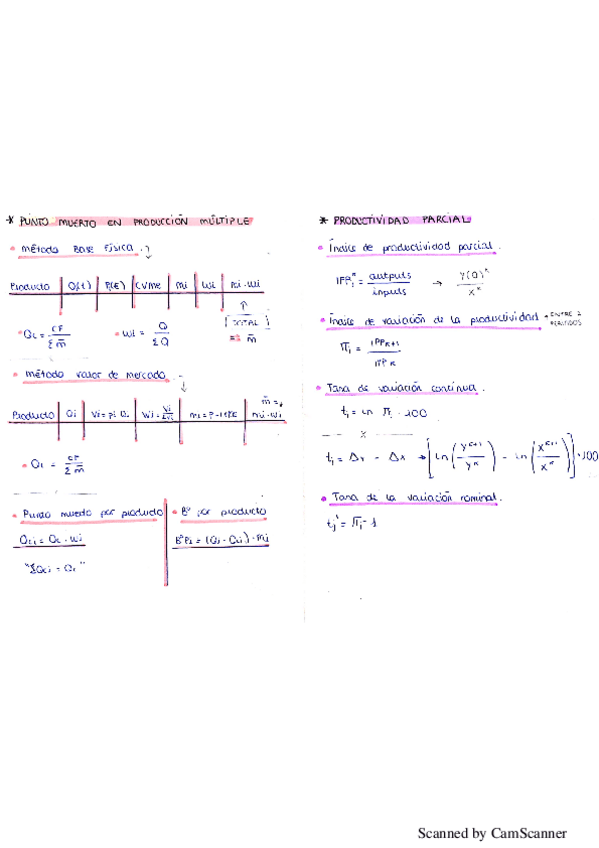 * PUNTO MUERTO EN PRODUCCIÓN MÚLTIPLE
• Método BASE Física.
Producto | Q(t) | P(€) | CVMe | mi | Wi | mi·wi
[TOTAL]
= m̄
• Qc = CF / Σ m̄ • Wi = Q / ΣQ
• Método valor de mercado
m̄ =
Producto | Qi | Vi = pi·Qi | Wi = Vi/ΣVi | mi·wi
• Qc = CF / Σ m̄
• Punto muerto por producto
Qci = Qc · wi
"ΣQci = Qc"
• Bº por producto
BºPi = (Qi - Qci) · mi
* PRODUCTIVIDAD PARCIAL
• Índice de productividad parcial.
outputs / inputs → Y(Q)ᵏ / Xᵏ
• Índice de variación de la productividad → ENTRE 2 PERIODOS
πi = IPPK+1 / IPPK
• Tasa de variación continua.
ti = ln πi · 100
x
ti = Δy - Δx → [ln (Yᵏ⁺¹ / Yᵏ) - ln (Xᵏ⁺¹ / Xᵏ)] · 100
• Tasa de la variación nominal.
ti' = πi - 1
Scanned by CamScanner